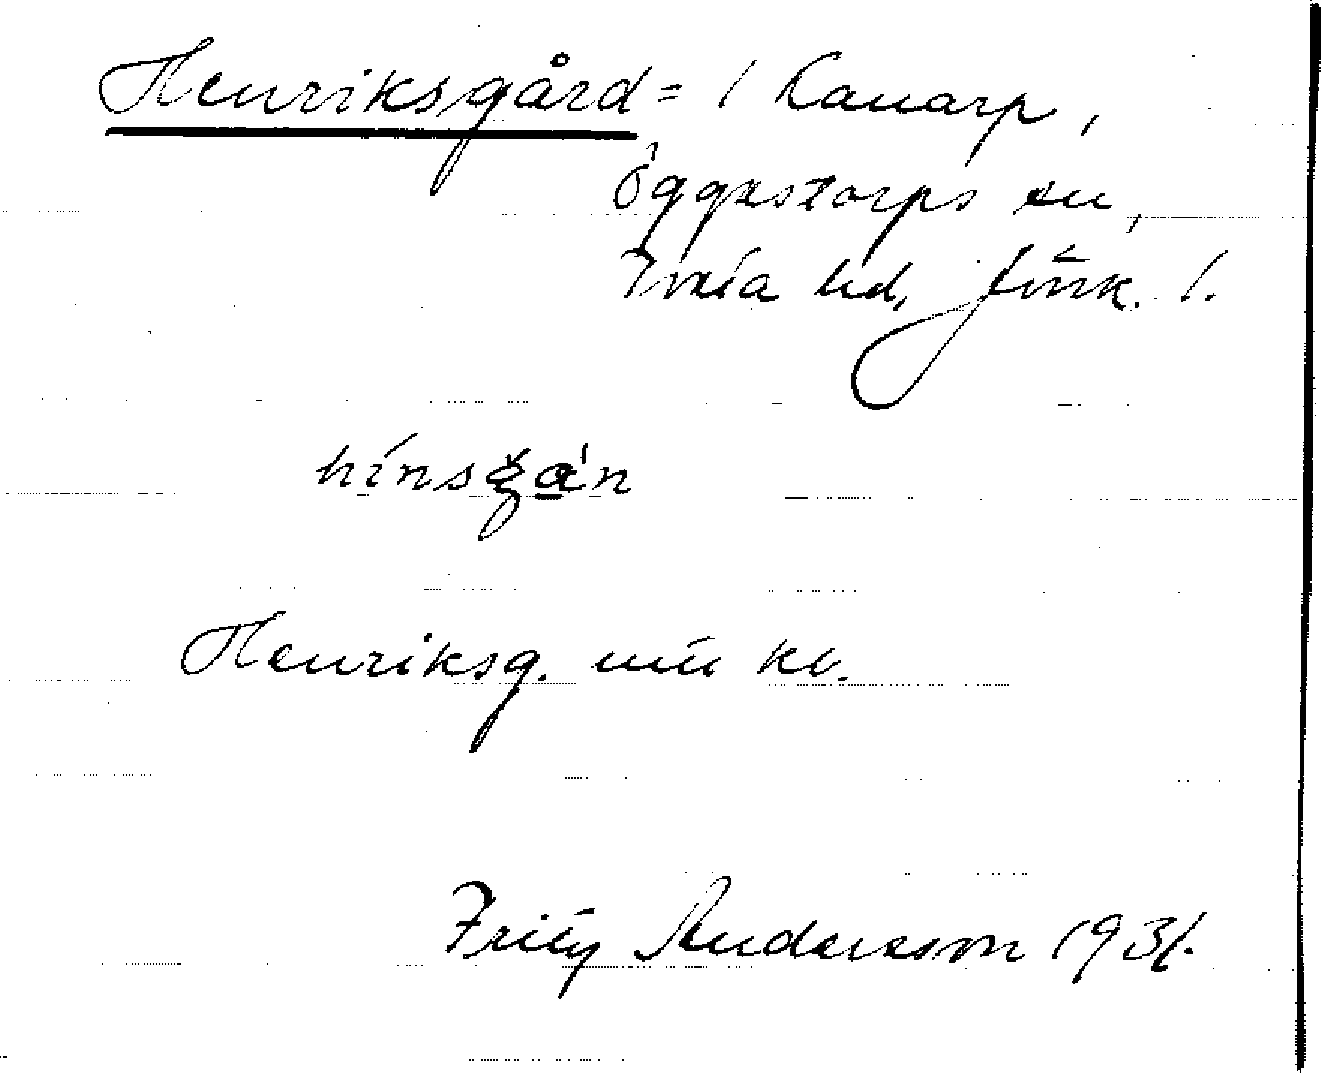 Henriksgård = 1 Kanarp,
Öggestorps sn,
Tveta hd, Jönk. l.
Henriksg. nu kv.
Fritz Andersson 1931.